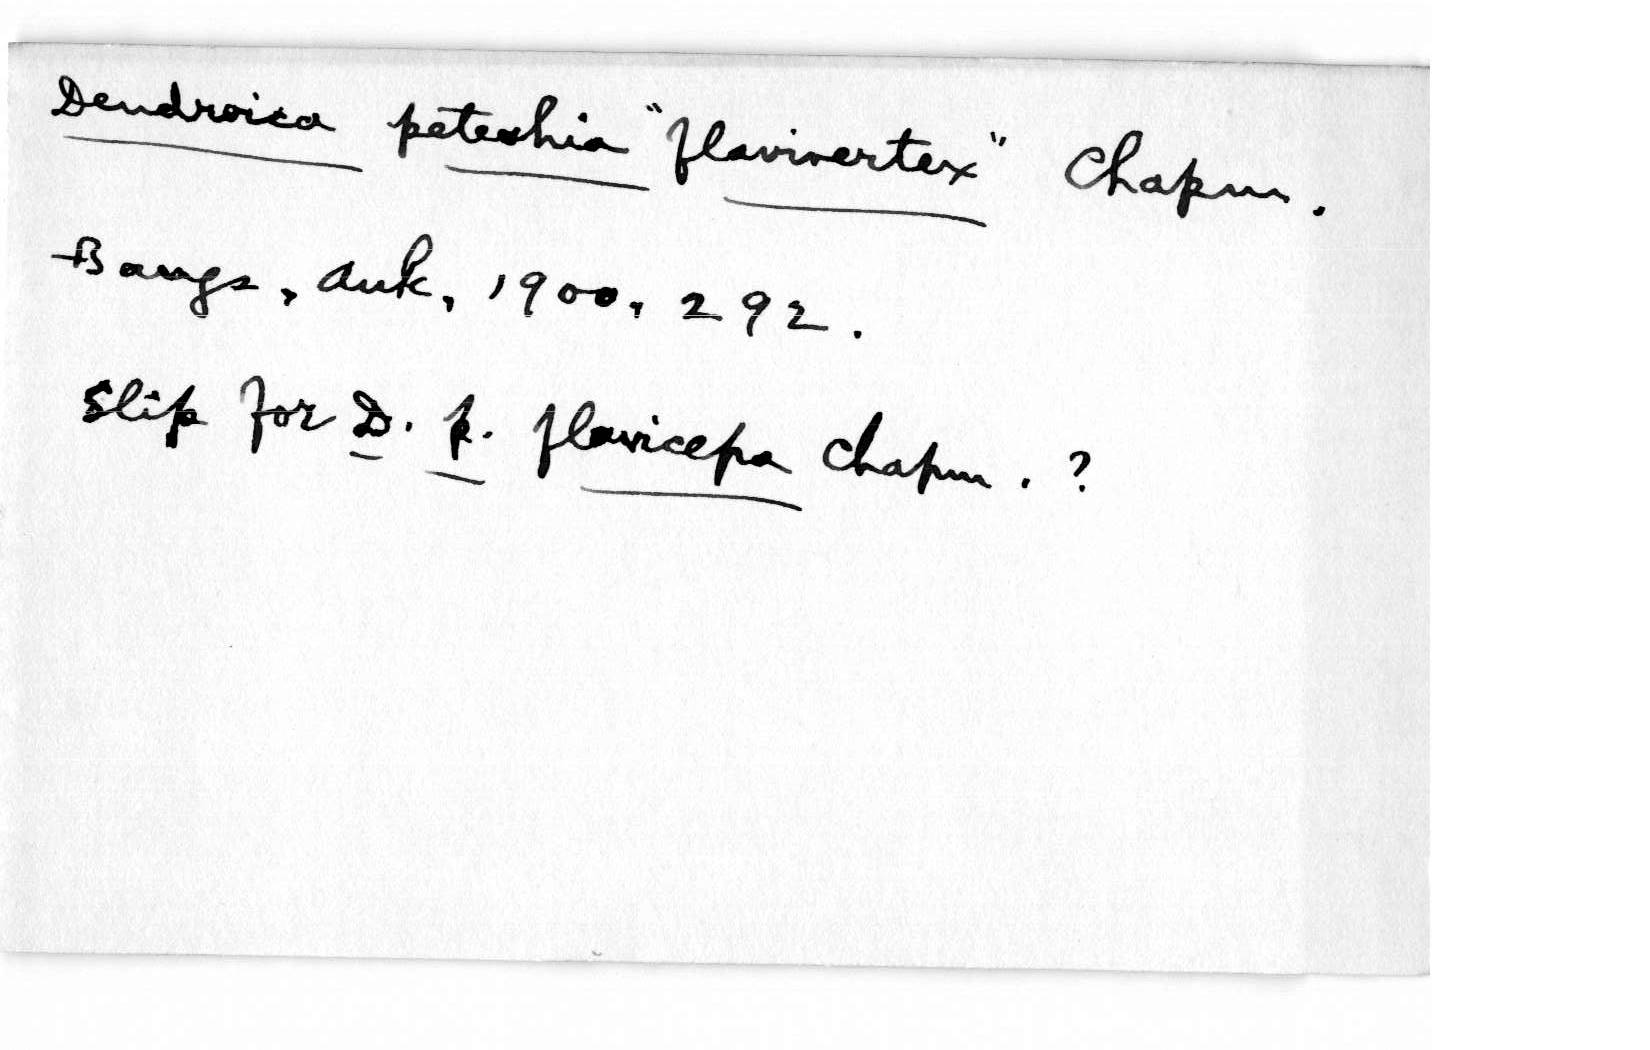 Dendroica petechia "flavivertex" Chapm.
Bangs, Auk, 1900, 292.
Slip for D. p. flaviceps Chapm. ?